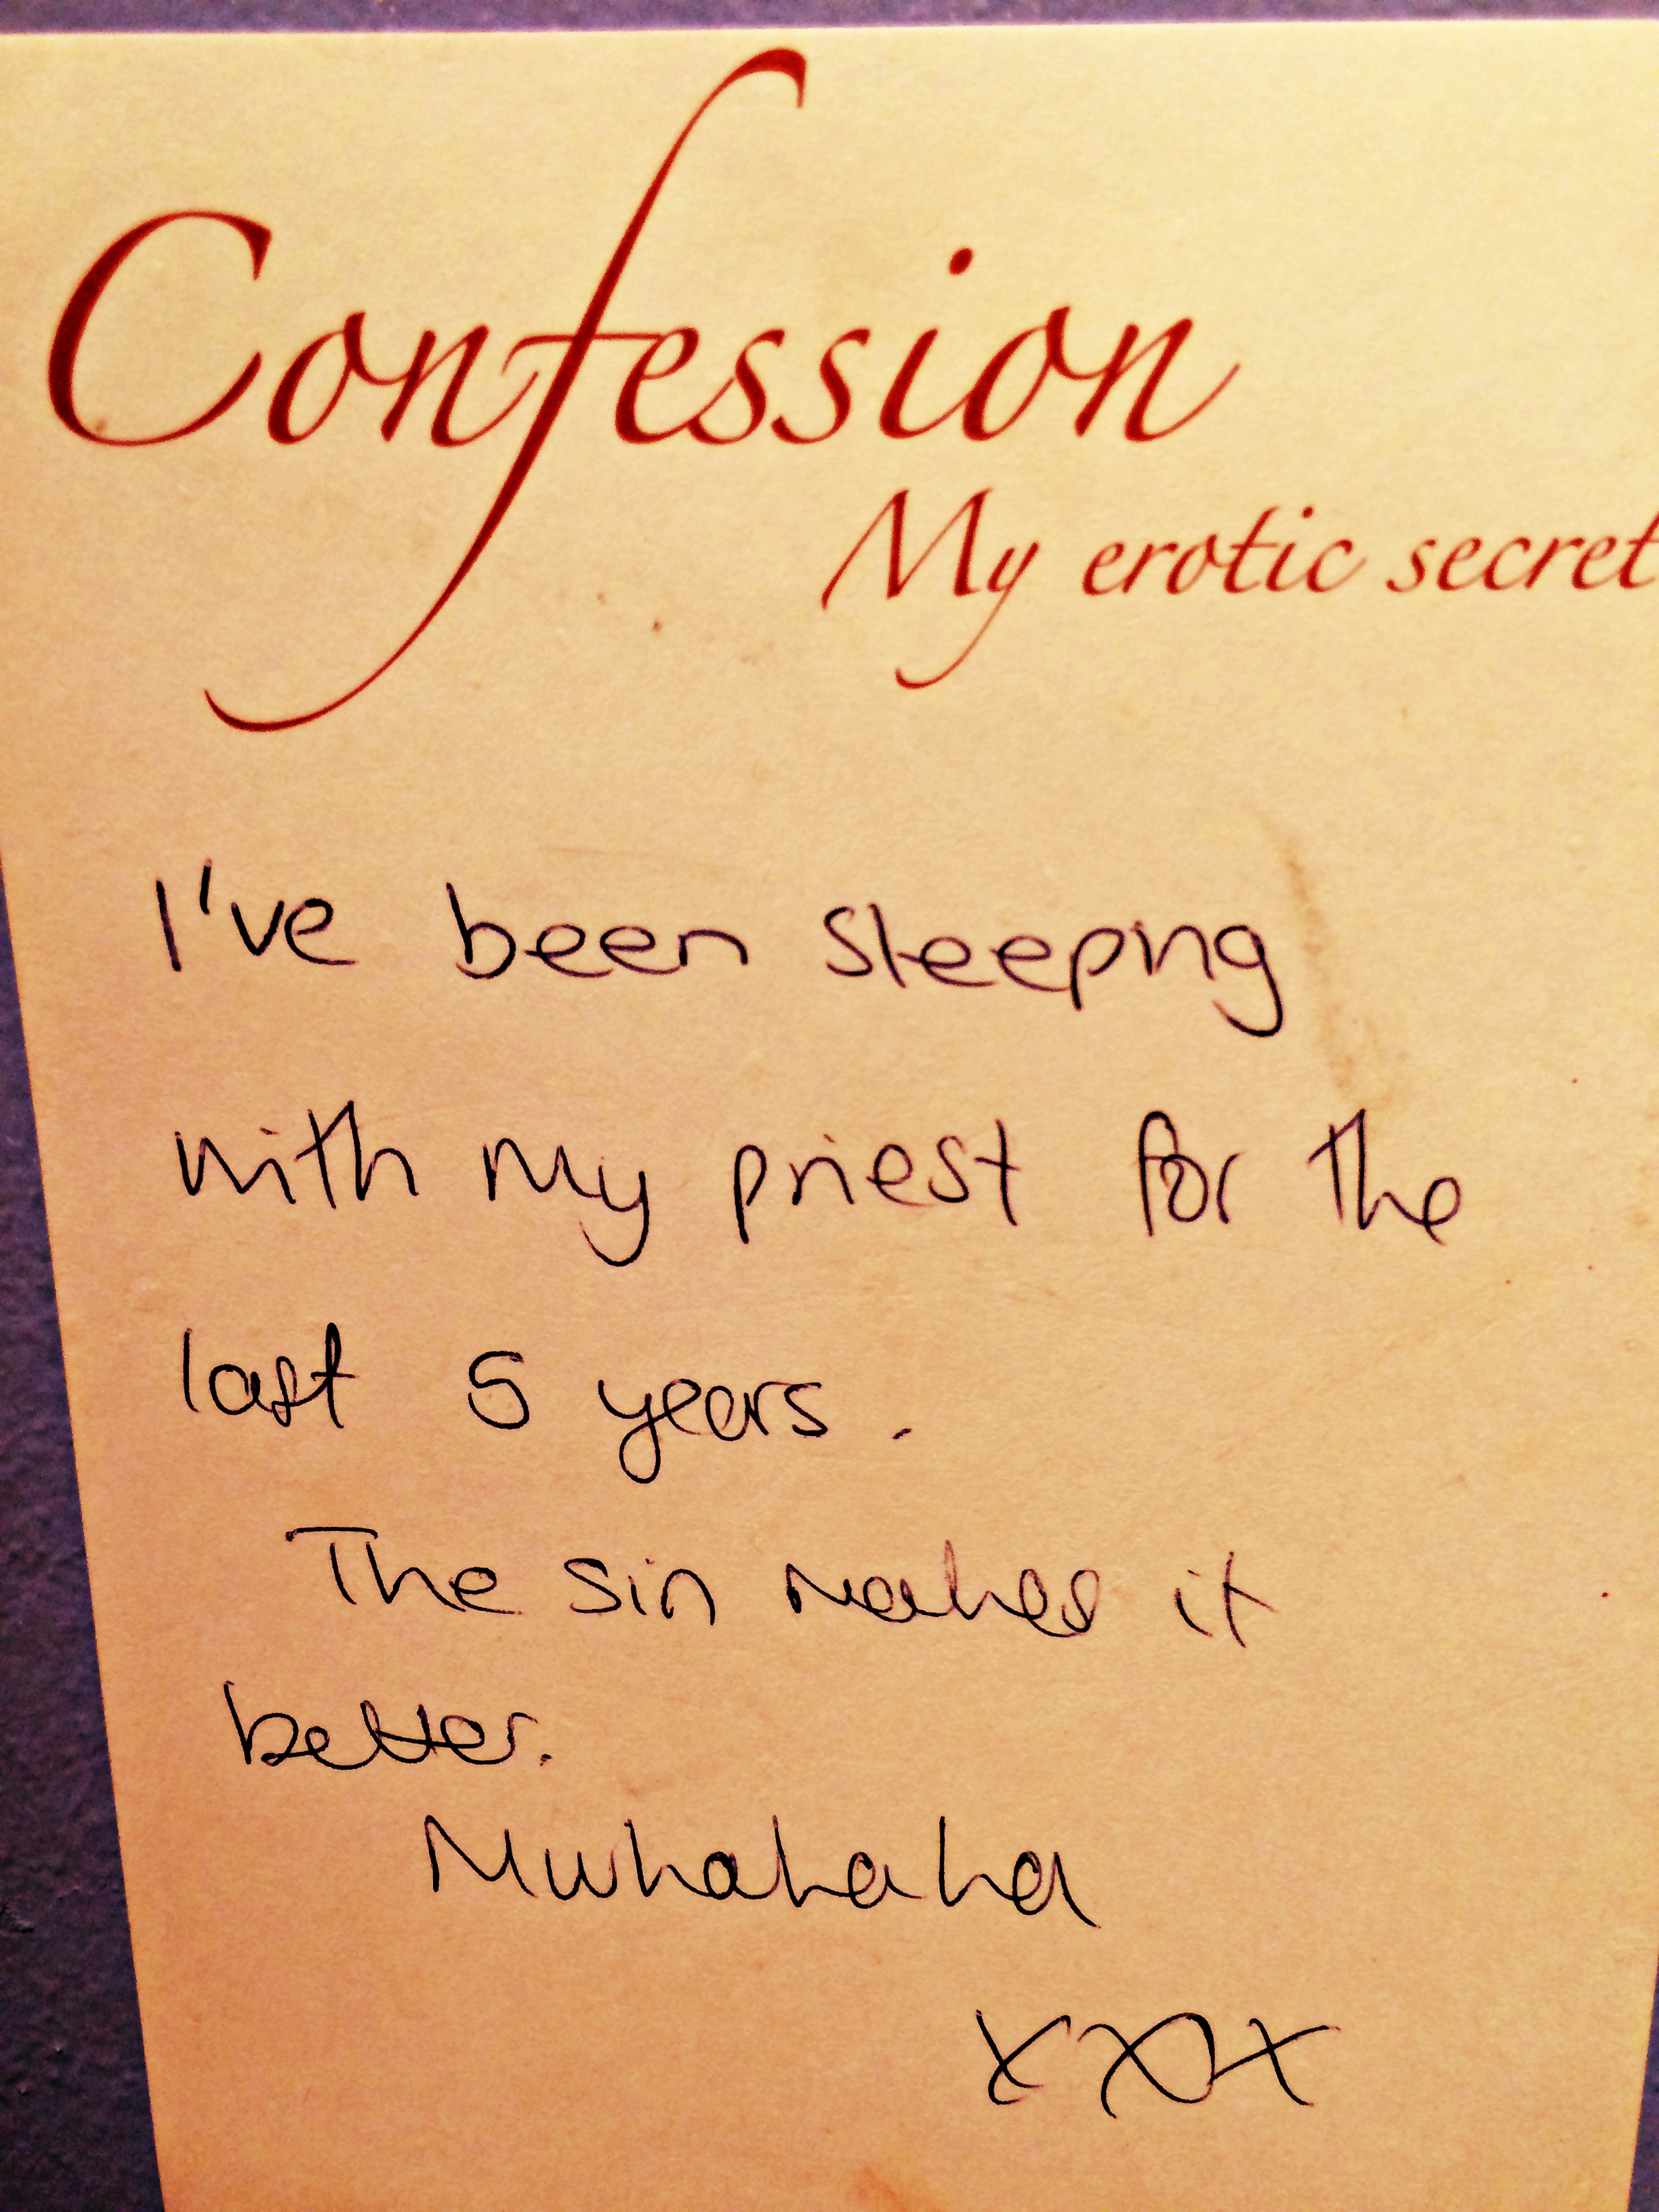 Confession
My erotic secret
I've been sleeping
with my priest for the
last 5 years.
The sin makes it
better.
Mwhahaha
xxx